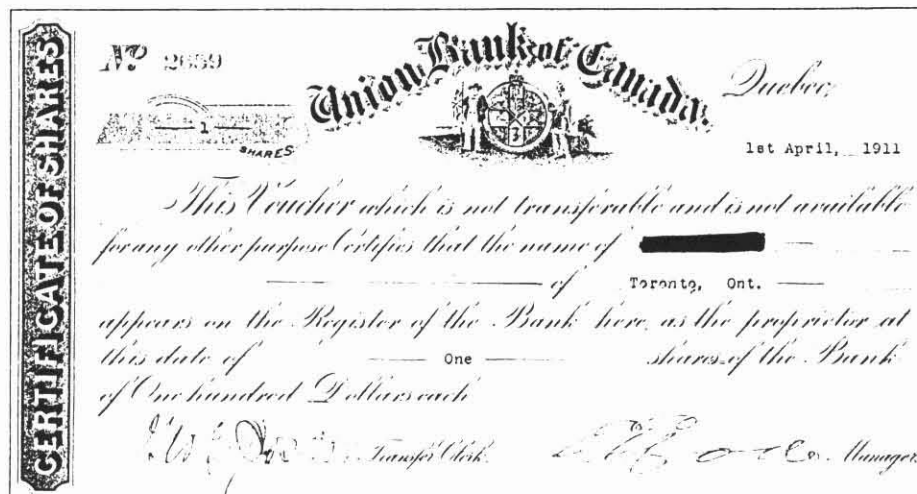 CERTIFICATE OF SHARES
Nº 2659
Union Bank of Canada.
Quebec,
1
SHARES
1st April, 1911
This Voucher which is not transferable and is not available
for any other purpose Certifies that the name of
of Toronto, Ont.
appears on the Register of the Bank here, as the proprietor at
this date of One shares of the Bank
of One hundred Dollars each
Transfer Clerk. Manager.